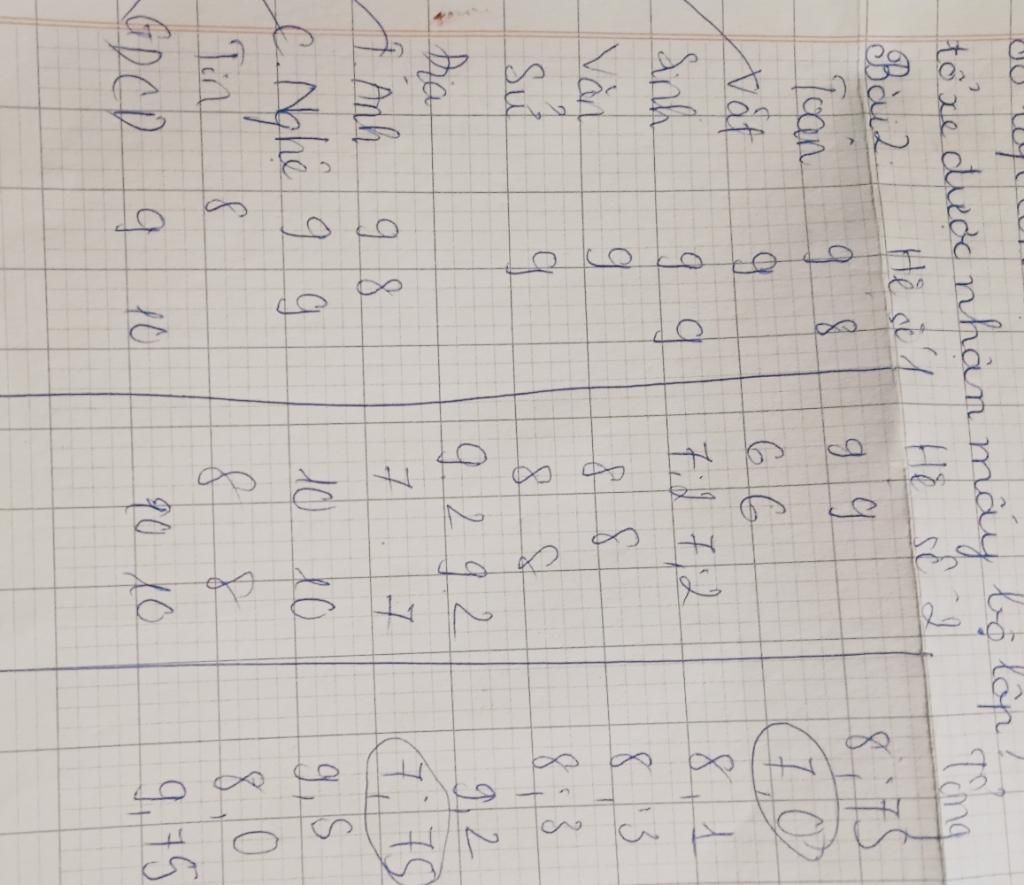 tổ xe được nhận mấy bộ lốp?
Bài 2. Hệ số 1 Hệ số 2 Tổng
Toán 9 8 9 9 8,75
Vật 9 6 6 7,0
Sinh 9 9 7,2 7,2 8,1
Văn 9 8 8 8,3
Sử 9 8 8 8,3
Địa 9,2 9,2 9,2
T. Anh 9 8 7 7 7,75
C. Nghệ 9 9 10 10 9,5
Tin 8 8 8 8,0
GDCD 9 10 10 10 9,75